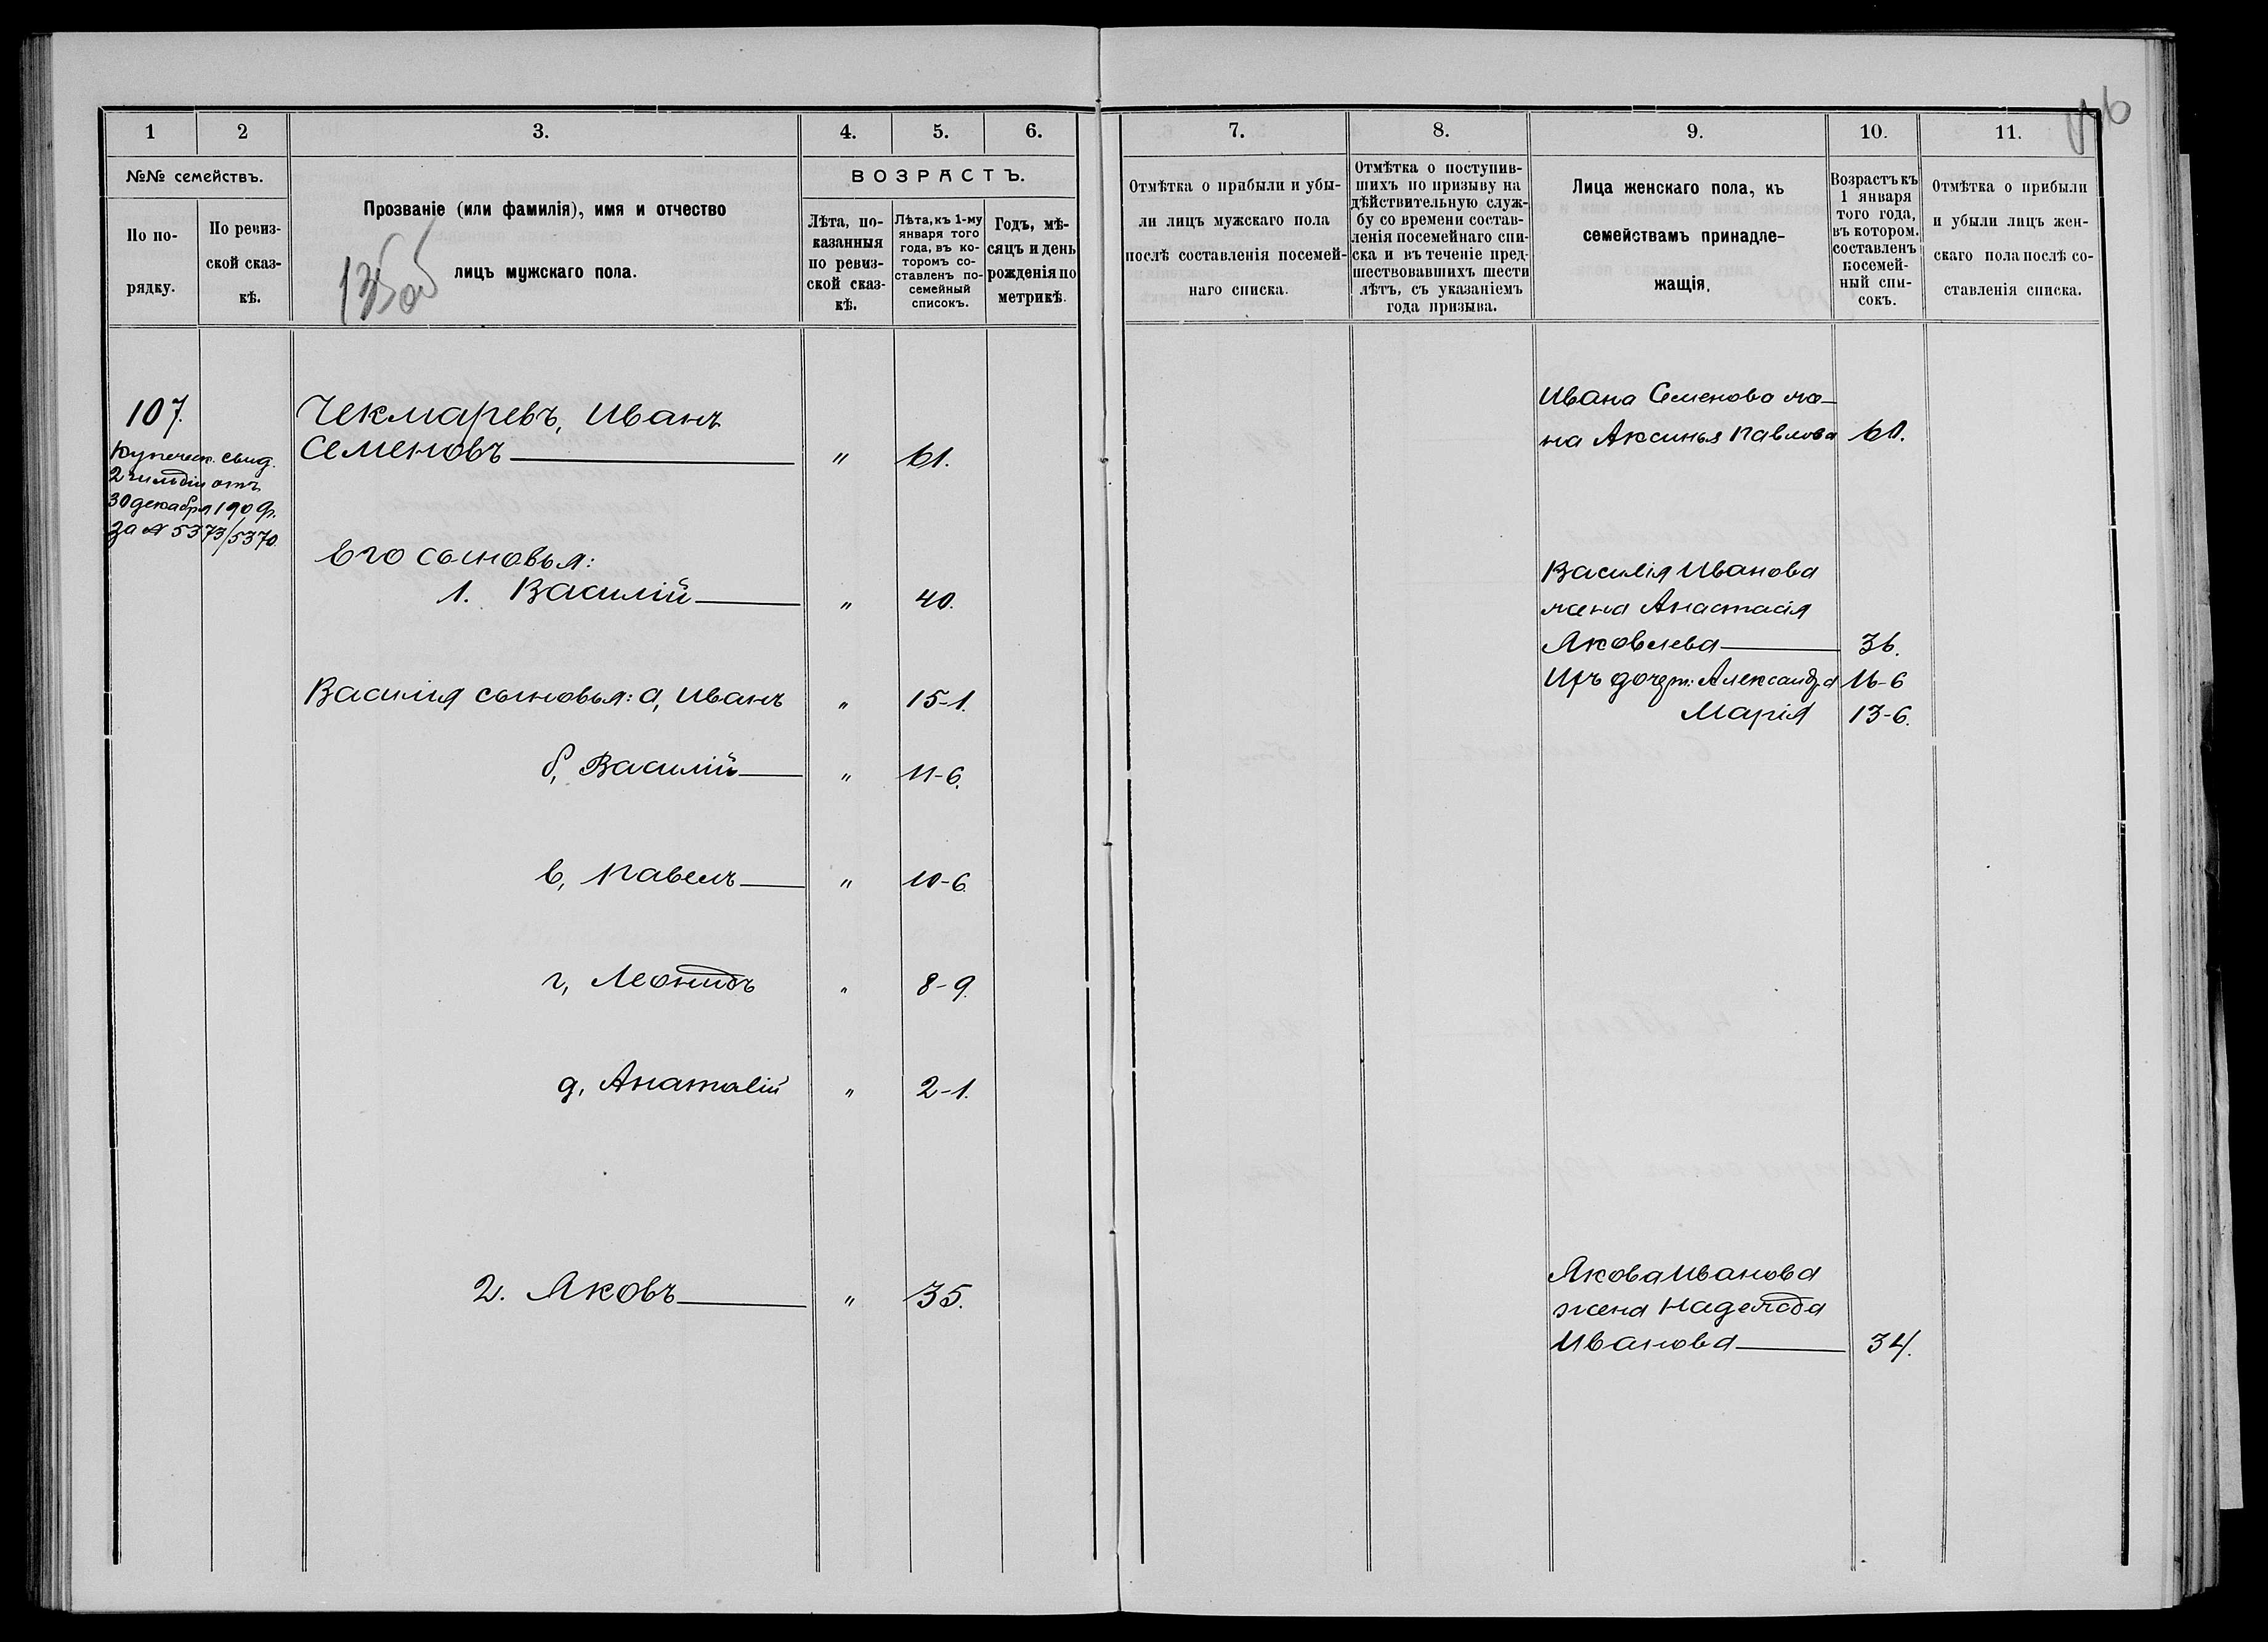 1
2
3.
4.
5.
6.
№№ семействъ.
По по-
рядку.
По ревиз-
ской сказ-
кѣ.
Прозваніе (или фамилія), имя и отчество
лицъ мужскаго пола.
ВОЗРАСТЪ.
Лѣта, по-
казанныя
по ревиз-
ской сказ-
кѣ.
Лѣта, къ 1-му
января того
года, въ ко-
торомъ со-
ставленъ по-
семейный
списокъ.
Годъ, мѣ-
сяцъ и день
рожденія по
метрикѣ.
107.
Купеческ. свид.
2 гильдіи отъ
30 декабря 190 г.
за № 5373/5370.
Чекмаревъ, Иванъ
Семеновъ " 61.
Его сыновья:
1. Василій " 40.
Василія сыновья: а, Иванъ " 15-1.
б, Василій " 11-6.
в, Павелъ " 10-6.
г, Леонидъ " 8-9.
д, Анатолій " 2-1.
2. Яковъ " 35.
7.
8.
9.
10.
11.
Отмѣтка о прибыли и убы-
ли лицъ мужскаго пола
послѣ составленія посемей-
наго списка.
Отмѣтка о поступив-
шихъ по призыву на
дѣйствительную служ-
бу со времени состав-
ленія посемейнаго спи-
ска и въ теченіе пред-
шествовавшихъ шести
лѣтъ, съ указаніемъ
года призыва.
Лица женскаго пола, къ
семействамъ принадле-
жащія.
Возрастъ къ
1 января
того года,
въ котором.
составленъ
посемей-
ный спи-
сокъ.
Отмѣтка о прибыли
и убыли лицъ жен-
скаго пола послѣ со-
ставленія списка.
Ивана Семенова же-
на Аксинья Павлова 61.
Василія Иванова
жена Анастасія
Яковлева 36.
Ихъ дочери: Александра 16-6
Марія 13-6.
Якова Иванова
жена Надежда
Иванова 34.